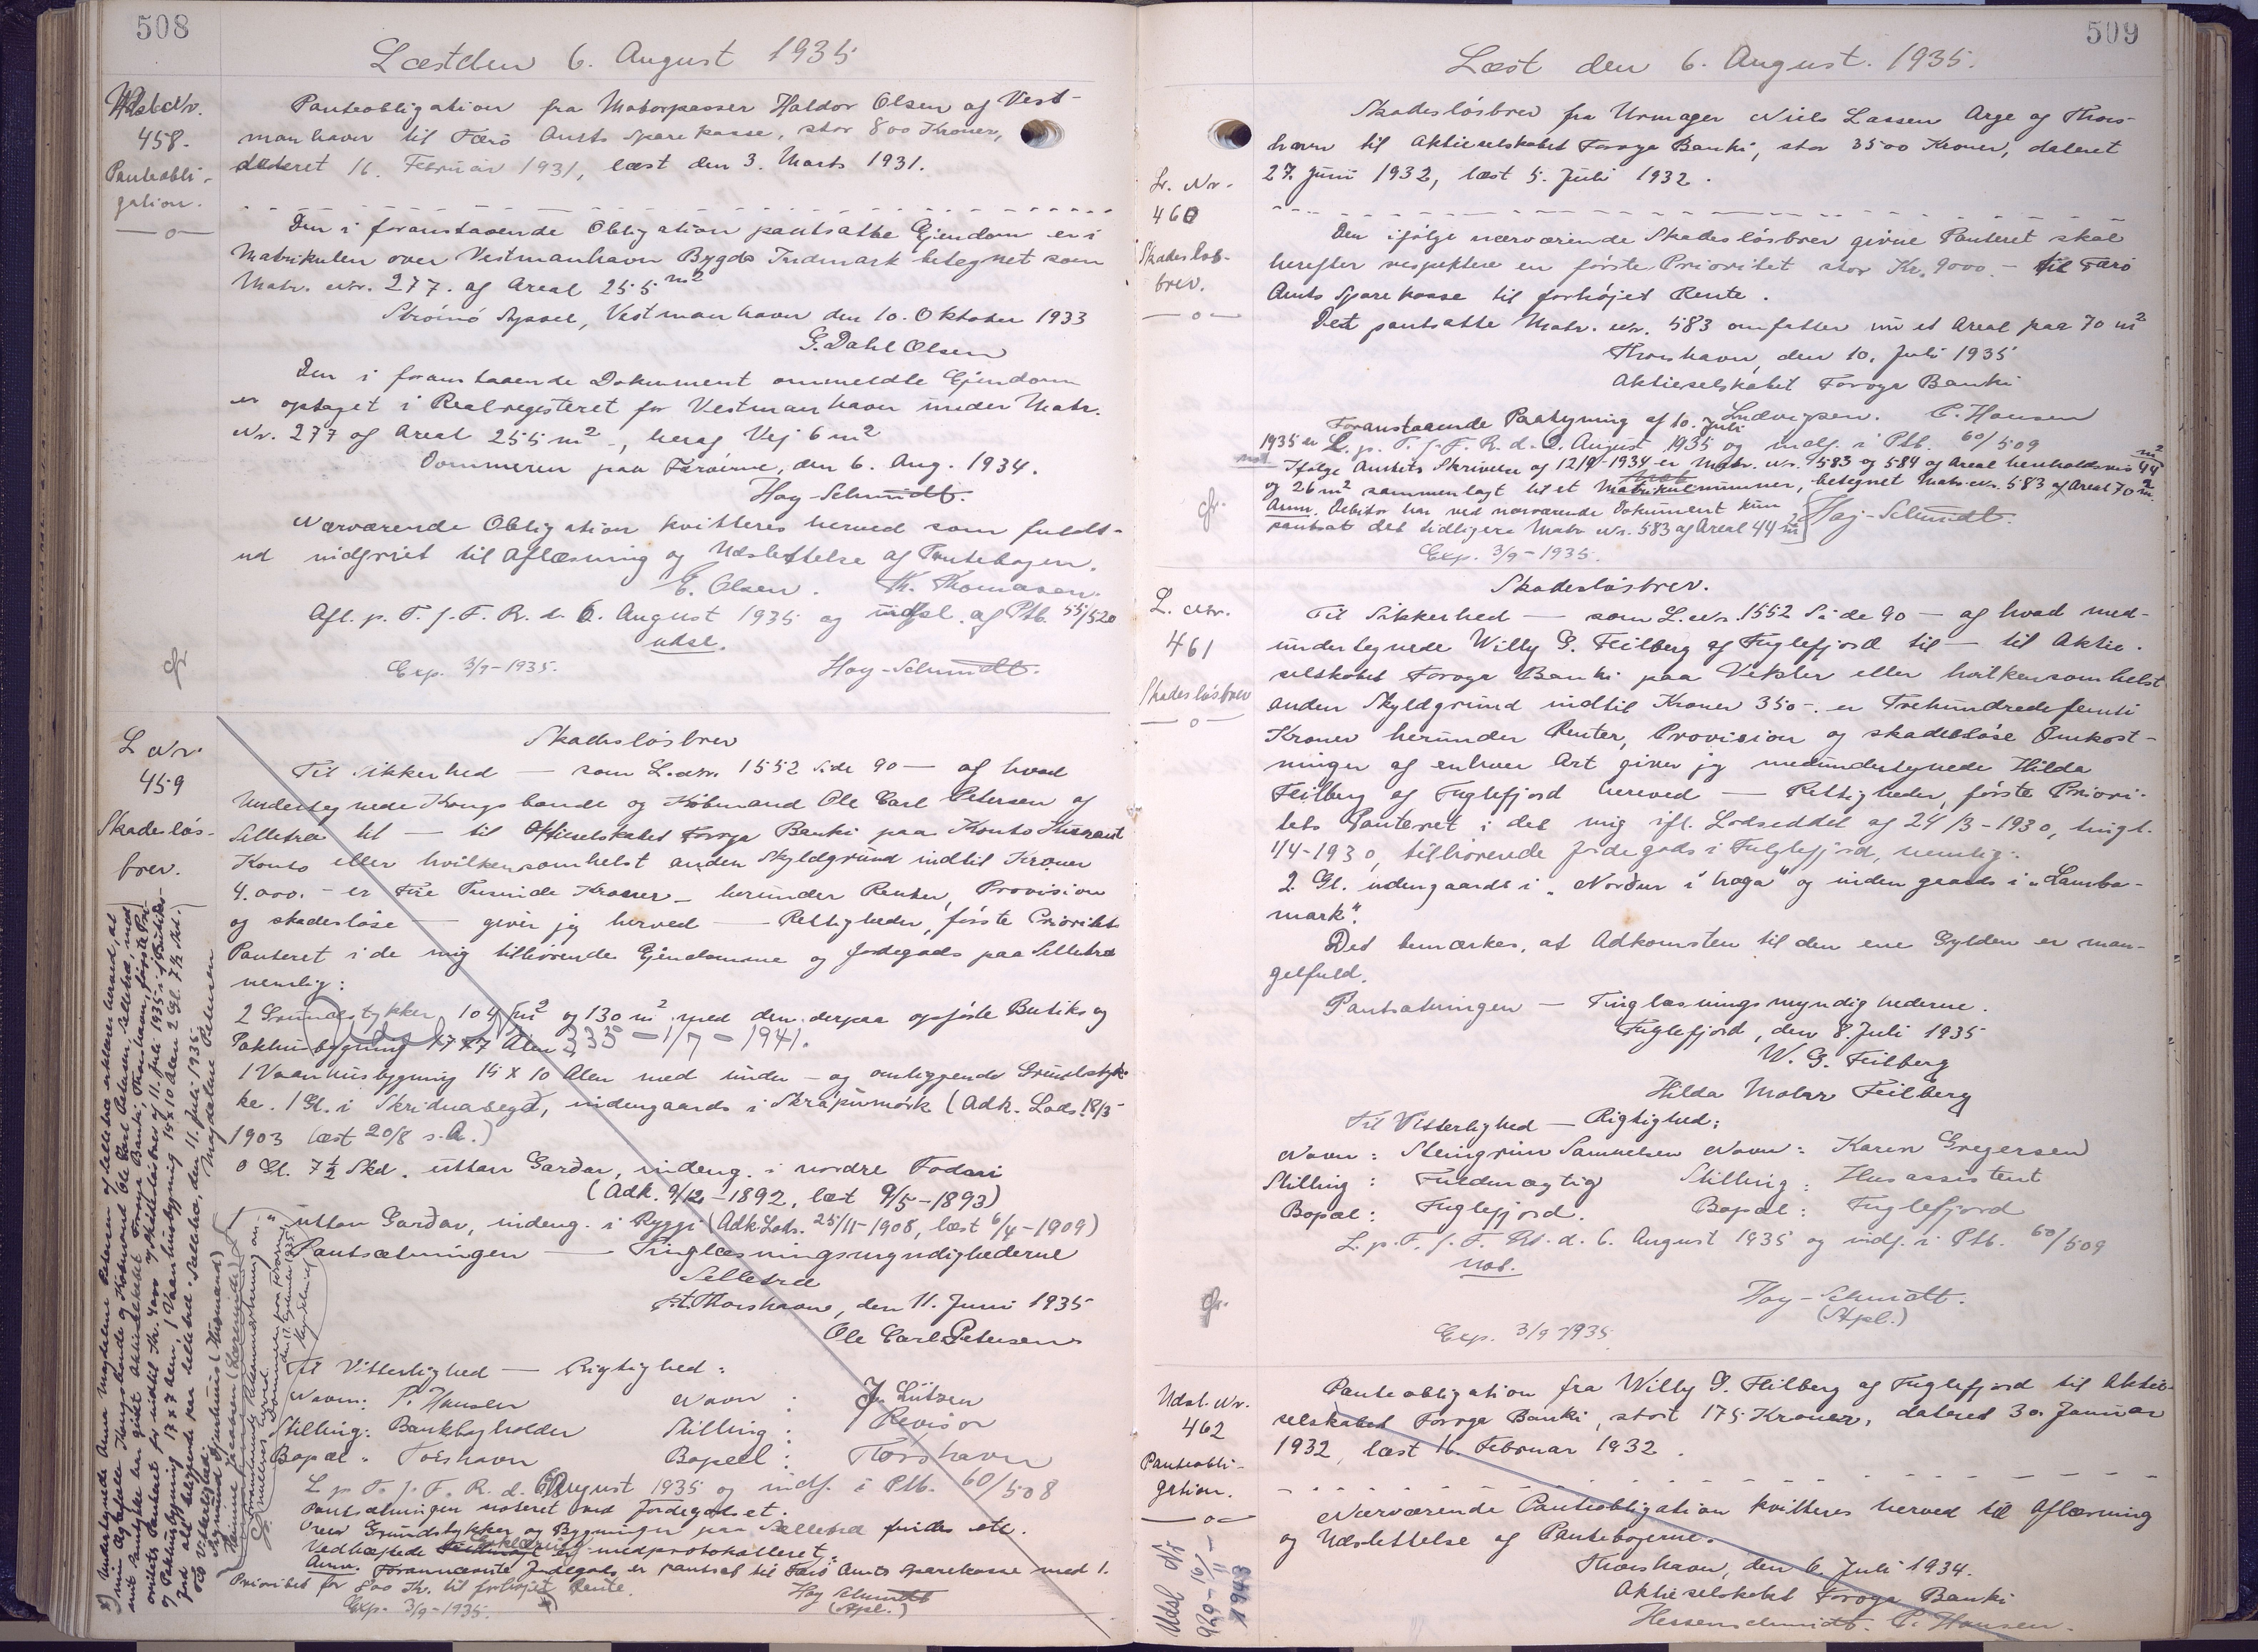 508
Læst den 6. August 1935
Udsl. Nr.
458.
Panteobli-
gation.
Panteobligation fra Motorpasser Haldor Olsen af Vest-
manhavn til Færø Amts Sparekasse, stor 800 Kroner,
dateret 16. Februar 1931, læst den 3. Marts 1931.
Den i foranstaaende Obligation pantsatte Ejendom er i
Matrikulen over Vestmanhavn Bygds Indmark betegnet som
Matr. Nr. 277. af Areal 255 m2
Strømø Syssel, Vestmanhavn den 10. Oktober 1933
G. Dahl Olsen
Den i foranstaaende Dokument ommeldte Ejendom
er optaget i Realregisteret for Vestmanhavn under Matr.
Nr. 277 af Areal 255 m2 -, heraf Vej 6 m2
Dommeren paa Færøerne, den 6. Aug. 1934.
Høy-Schmidt.
Nærværende Obligation kvitteres herved som fuldt-
ud indfriet til Aflæsning og Udslettelse af Pantebogen.
E. Olsen. Th. Thomasen.
Afl. p. T. f. F. R. d. 6. August 1935 og udsl. af Ptb. 55/520
udsl.
Exp. 3/9-1935. Høy-Schmidt.
L Nr.
459
Skadesløs-
brev.
Skadesløsbrev
Til Sikkerhed — som L. Nr. 1552 Side 90 — af hvad
Undertegnede Kongsbonde og Købmand Ole Carl Petersen af
Selletræ til — til Aktieselskabet Føroya Banki paa Konto Kurrant
Konto eller hvilkensomhelst anden Skyldgrund indtil Kroner
4.000.- er Fire Tusinde Kroner - herunder Renter, Provision
og skadesløse — giver jeg herved — Rettigheder, første Prioritets
Panteret i de mig tilhørende Ejendomme og Jordegods paa Selletræ
nemlig:
2 Grundstykker 104 m2 og 130 m2 med den derpaa opførte Butiks og
Pakhusbygning 17x7 Alen
Udsl 335-1/7-1941.
1 Vaanhusbygning 15 x 10 Alen med under- og omliggende Grundstyk-
ke. 1 Gl. i Skriduasegd, indengaards i Skrápumørk (Adk. Lods. 18/3
1903 læst 20/8 s.A.)
0 Gl. 7½ Skd. uttan Garðar, indeng. i nordre Todari
(Adk. 9/12-1892, læst 9/5-1893)
1 " uttan Garðar, indeng. i Ryggi (Adk. Lods. 25/11-1908, læst 6/4-1909)
Pantsætningen — Tinglæsningsmyndighederne
Selletræ
p.t. Thorshavn, den 11. Juni 1935
Ole Carl Petersen
Til Vitterlighed — Rigtighed:
Navn: P. Hansen Navn: J. Lützen
Stilling: Bankbogholder Stilling: Revisor
Bopæl: Tórshavn Bopæl: Tórshavn
L. p. T. f. F. R. d. 6. August 1935 og indf. i Ptb. 60/508
Pantsætningen noteret ved Jordegodset.
Over Grundstykker og Bygninger paa Selletræ findes ette.
Vedhæftede Erklæring er medprotokolleret.
Anm. Forannævnte Jordegods er pantsat til Færø Amts Sparekasse med 1.
Prioritet for 800 Kr. til forhøjet Rente.
Exp. 3/9-1935. Høy Schmidt
(Stpl.)
Undertegnede Anna Magdalene Petersen af Selletræ erklærer herved, at
min Ægtefælle Kongsbonde og Købmand Ole Carl Petersen, Selletræ, med
mit Samtykke har givet Aktieselskabet Føroya Banki, Thorshavn, første Pri-
oritets Panteret for indtil Kr. 4000 if. Skadesløsbrev af 11. Juli 1935 i 1 Butiks-
og Pakhusbygning 17x7 Alen, 1 Vaanhusbygning 15x10 Alen 2 Gl. 7½ Skd.
Jord alt beliggende paa Selletræ. Selletræ, den 11. Juli 1935
Magdalene Petersen
Til Vitterlighed:
509
Læst den 6. August. 1935.
L. Nr.
460
Skadesløs-
brev.
Skadesløsbrev fra Urmager Niels Lassen Arge af Thors-
havn til Aktieselskabet Føroya Banki, stor 3500 Kroner, dateret
27. Juni 1932, læst 5. Juli 1932.
Den ifølge nærværende Skadesløsbrev givne Panteret skal
herefter respektere en første Prioritet stor Kr. 9000.- til Færø
Amts Sparekasse til forhøjet Rente.
Det pantsatte Matr. Nr. 583 omfatter nu et Areal paa 70 m2
Thorshavn, den 10. Juli 1935
Aktieselskabet Føroya Banki
Ludvigsen. P. Hansen
Foranstaaende Paategning af 10. Juli
1935 er L. p. T. f. F. R. d. 6. August 1935 og indf. i Ptb. 60/509
not. Ifølge Amtets Skrivelse af 12/9-1934 er Matr. Nr. 583 og 584 af Areal henholdsvis 44 m2
og 26 m2 sammenlagt til et Matrikulnummer, betegnet Matr. Nr. 583 af Areal 70 m2.
Anm. Debitor har ved nærværende Dokument kun
pantsat det tidligere Matr. Nr. 583 af Areal 44 m2 Høy-Schmidt.
Exp. 3/9-1935.
L. Nr.
461
Skadesløsbrev
Skadesløsbrev.
Til Sikkerhed — som L. Nr. 1552 Side 90 — af hvad med-
undertegnede Willy G. Feilberg af Fuglefjord til — til Aktie-
selskabet Føroya Banki paa Veksler eller hvilkensomhelst
anden Skyldgrund indtil Kroner 350-. er Trehundredefemti
Kroner herunder Renter, Provision og skadesløse Omkost-
ninger af enhver Art giver jeg medundertegnede Hilda
Feilberg af Fuglefjord herved — Rettigheder, første Priori-
tets Panteret i det mig ifl. Lodseddel af 24/3-1930, tingl.
1/4-1930, tilhørende Jordegods i Fuglefjord, nemlig:
2 Gl. udengaards i „Norður i haga" og inden gaards i „Lamba-
mark".
Det bemærkes, at Adkomsten til den ene Gylden er man-
gelfuld.
Pantsætningen — Tinglæsningsmyndighederne.
Fuglefjord, den 8. Juli 1935
W. G. Feilberg
Hilda Motzr Feilberg
Til Vitterlighed — Rigtighed:
Navn: Steingrim Samuelsen Navn: Karen Gregersen
Stilling: Fuldmægtig Stilling: Husassistent
Bopæl: Fuglefjord. Bopæl: Fuglefjord
L. p. T. f. F. R. d. 6. August 1935 og indf. i Ptb. 60/509
not.
Høy-Schmidt.
(Stpl.)
Exp. 3/9-1935
Udsl. Nr.
462
Panteobli-
gation.
Udsl Nr
929-16/11-
1943
Panteobligation fra Willy G. Feilberg af Fuglefjord til Aktie-
selskabet Føroya Banki, stor 175 Kroner, dateret 30. Januar
1932, læst 16. Februar 1932.
Nærværende Panteobligation kvitteres herved til Aflæsning
og Udslettelse af Pantebøgerne.
Thorshavn, den 6. Juli 1934.
Aktieselskabet Føroya Banki
Hessenschmidt. P. Hansen.